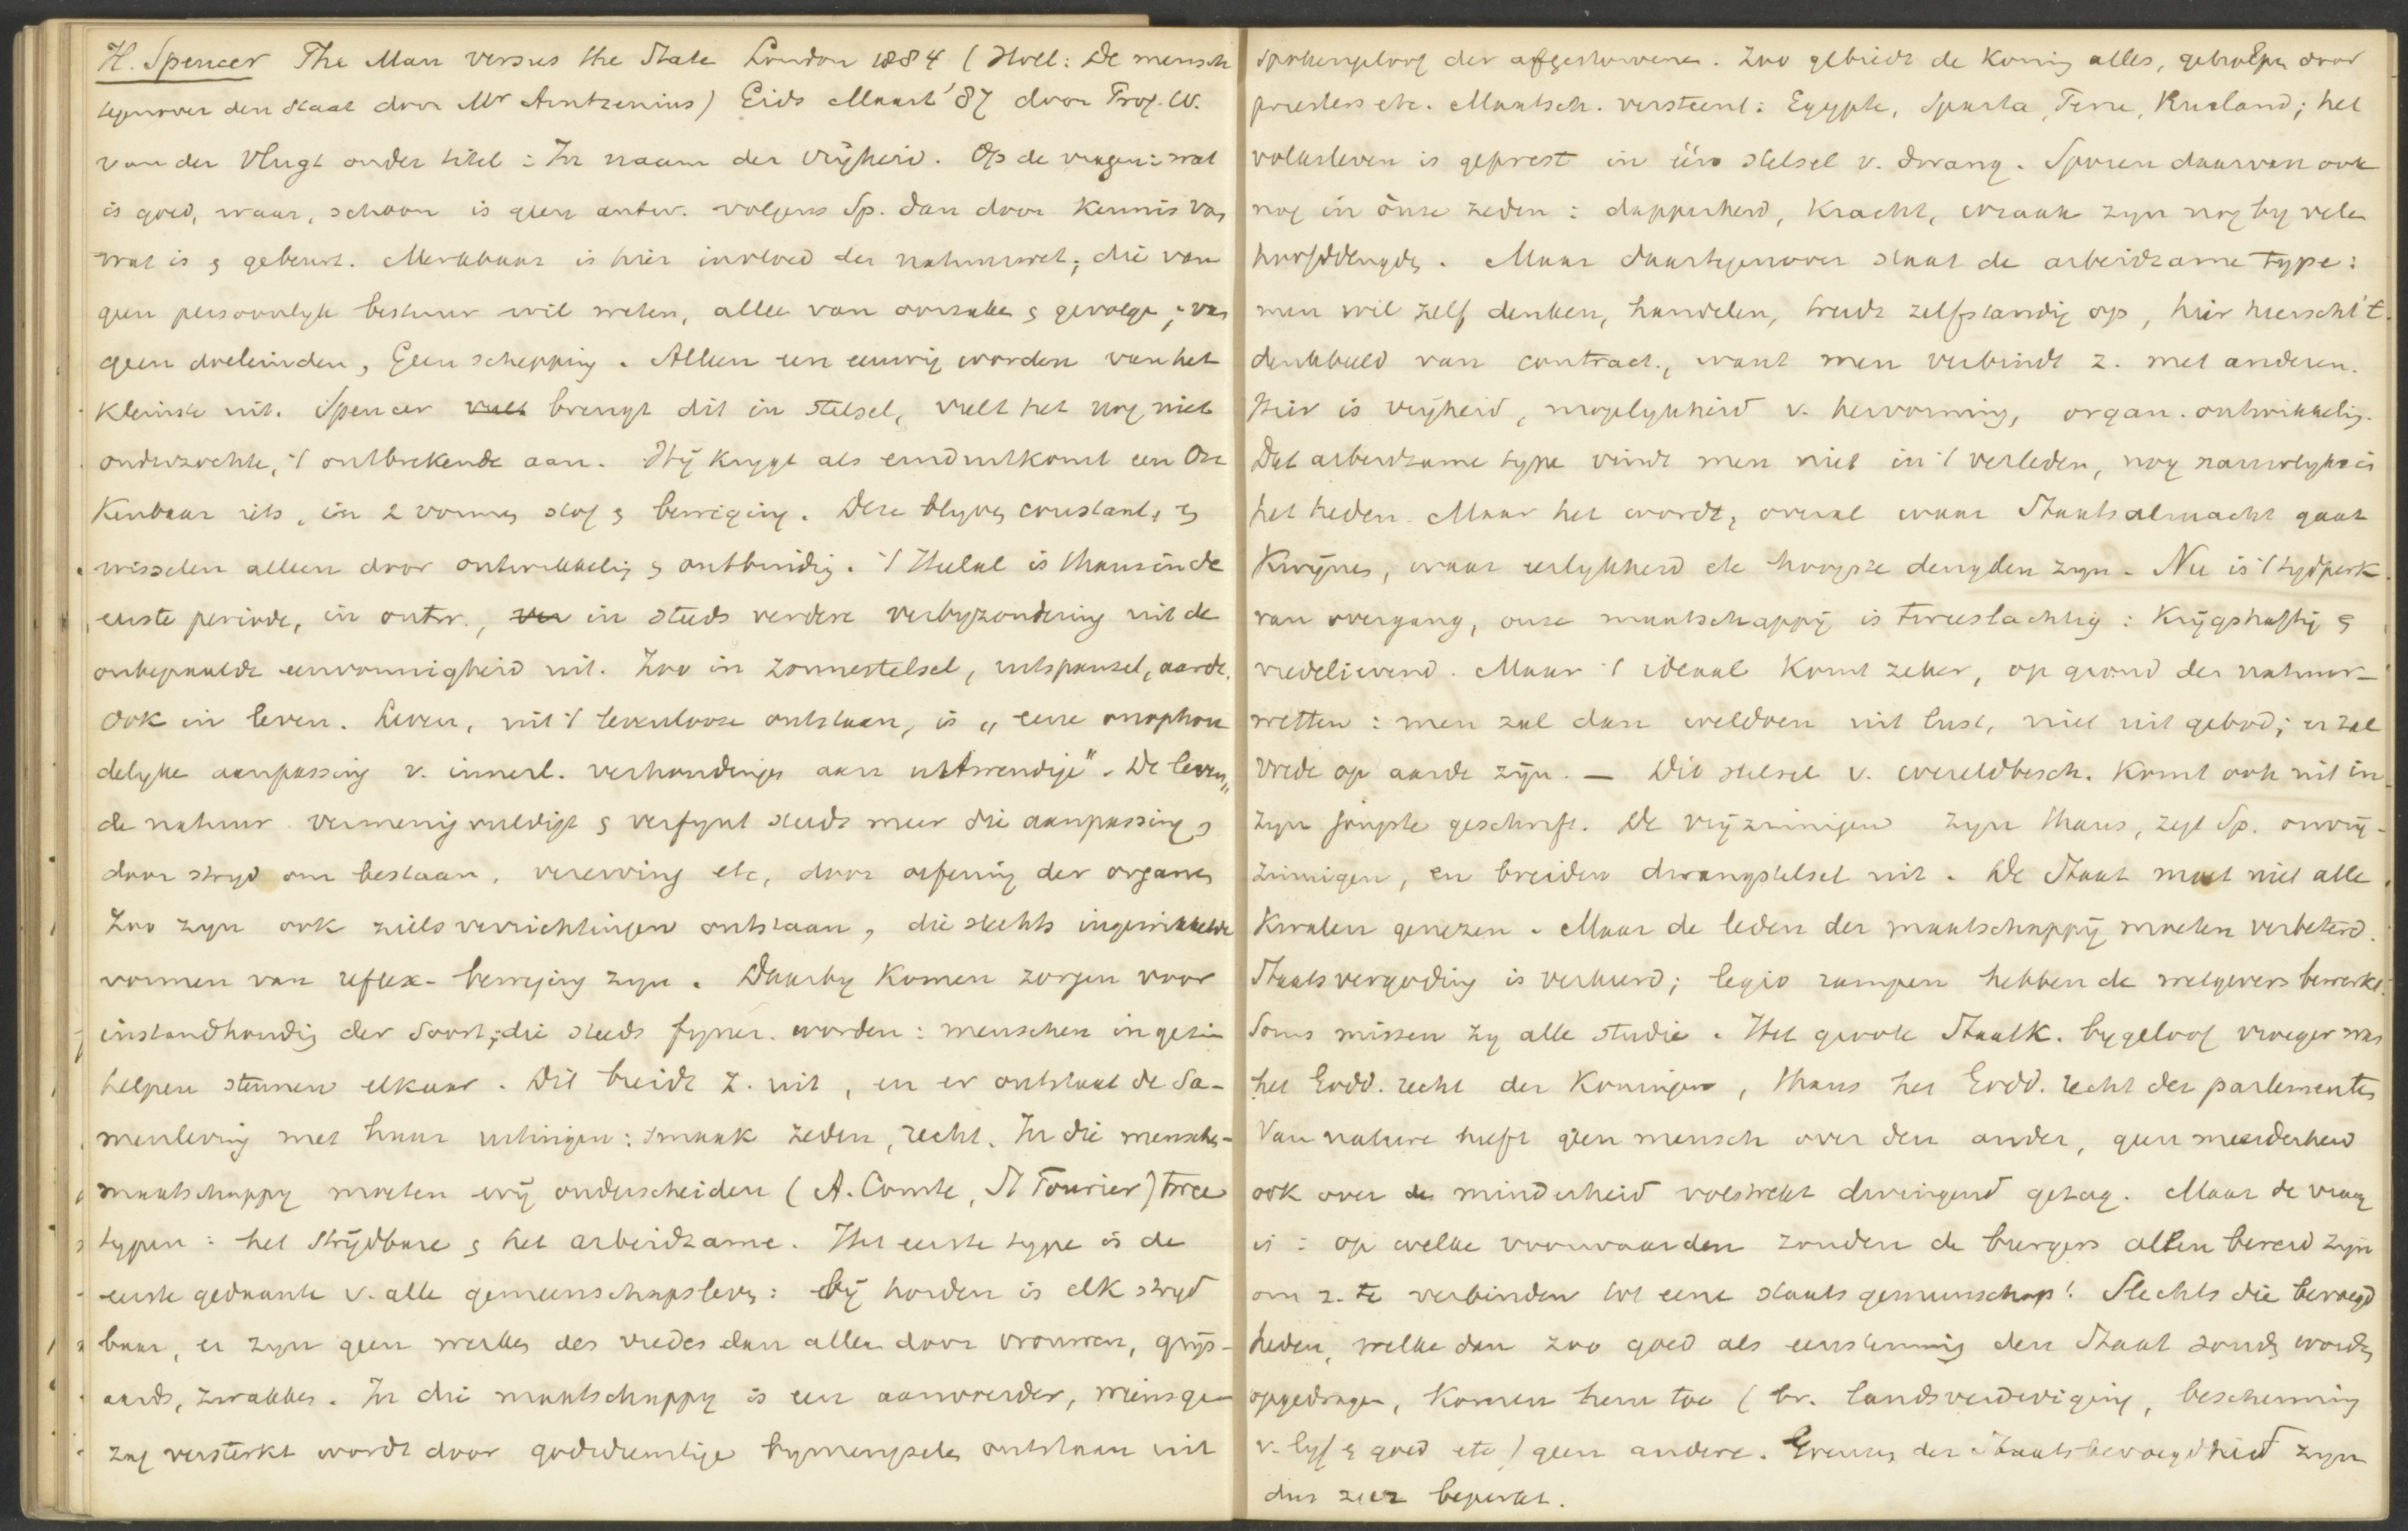 H. Spencer The Man versus the State London 1884 (Holl: De mensch
tegenover den staat door Mr Arntzenius) Gids Maart '87 door Prof. W.
van der Vlugt onder titel: In naam der vrijheid. Op de vragen: wat
is goed, waar, schoon is geen antw. volgens Sp. dan door kennis van
wat is & gebeurt. Merkbaar is hier invloed der natuurwet; die van
geen persoonlyk bestuur wil weten, alleen van oorzaken & gevolgen; van
geen doeleinden, geen schepping. Alleen een eeuwig worden van het
kleinste uit. Spencer vult brengt dit in stelsel, vult het nog niet
onderzochte, 't ontbrekende aan. Hij krygt als einduitkomst een On
kenbaar iets, in 2 vormen stof & beweging. Deze blyven constant, &
wisselen alleen door ontwikkeling & ontbinding. 't Heelal is thans in de
eerste periode, in ontw., in steeds verdere verbyzondering uit de
onbepaalde eenvormigheid uit. Zoo in zonnestelsel, uitspansel, aarde.
Ook in leven. Leven, uit 't levenlooze ontstaan, is „eene onophou
delyke aanpassing v. innerl. verhoudingen aan uitwendige". De leven„
de natuur vermenigvuldigt & verfynt steeds meer die aanpassing,
door stryd om bestaan, vererving etc, door oefening der organen
Zoo zyn ook zielsverrichtingen ontstaan, die slechts ingewikkelde
vormen van reflex-beweging zyn. Daarby komen zorgen voor
instandhouding der Soort; die steeds fyner worden: menschen in gezin
helpen steunen elkaar. Dit breidt z. uit, en er ontstaat de Sa-
menleving met haar uitingen: smaak zeden, recht. In die menschen-
maatschappy moeten wij onderscheiden (A. Comte, St Fourier) twee
typen: het strijdbare & het arbeidzame. Het eerste type is de
eerste gedaante v. alle gemeenschapsleven: bij horden is elk stryd
baar, er zyn geen werken des vredes dan alleen door vrouwen, grijs-
aards, zwakken. In die maatschappy is een aanvoerder, wiens ge-
zag versterkt wordt door godsdienstige bymengselen ontstaan uit
spokengeloof der afgestorvenen. Zoo gebiedt de Koning alles, geholpen door
priesters etc. Maatsch. versteent: Egypte, Sparta, Peru, Rusland; het
volksleven is geprest in één stelsel v. dwang. Sporen daarvan ook
nog in ònze zeden: dapperheid, kracht, wraak zyn nog by velen
hoofddeugden. Maar daartegenover staat de arbeidzame type:
men wil zelf denken, handelen, treedt zelfstandig op, hier heerscht 't
denkbeeld van contract., want men verbindt z. met anderen.
Hier is vrijheid, mogelykheid v. hervorming, organ. ontwikkeling.
Dat arbeidzame type vindt men niet in 't verleden, nog nauwlyks is
het heden. Maar het wordt, overal waar Staatsalmacht gaat
kwijnen, waar eerlykheid etc hoogste deugden zyn. Nu is 't tydperk
van overgang, onze maatschappij is tweeslachtig: krijgshaftig &
vredelievend. Maar 't ideaal komt zeker, op grond der natuur-
wetten: men zal dan weldoen uit lust, niet uit gebod; er zal
vrede op aarde zijn. — Dit stelsel v. wereldbesch. komt ook uit in
zyn jongste geschrift. De vrijzinnigen zyn thans, zegt Sp. onvrij-
zinnigen, en breiden dwangstelsel uit. De Staat moet niet alle
kwalen genezen. Maar de leden der maatschappij moeten verbeterd.
Staatsvergoding is verkeerd; legio rampen hebben de wetgevers bewerkt.
Soms missen zy alle studie. Het groote Staatk. bygeloof vroeger was
het Godd. recht der Koningen, thans het Godd. recht der parlementen
Van nature heeft geen mensch over den ander, geen meerderheid
ook over de minderheid volstrekt dwingend gezag. Maar de vraag
is: op welke voorwaarden zouden de burgers allen bereid zyn
om z. te verbinden tot eene staatsgemeenschap! Slechts die bevoegd
heden, welke dan zoo goed als eenstemmig den Staat zouden worden
opgedragen, komen hem toe (bv. landsverdediging, bescherming
v. lyf & goed etc) geen andere. Grenzen der Staatsbevoegdheid zyn
dus zeer beperkt.